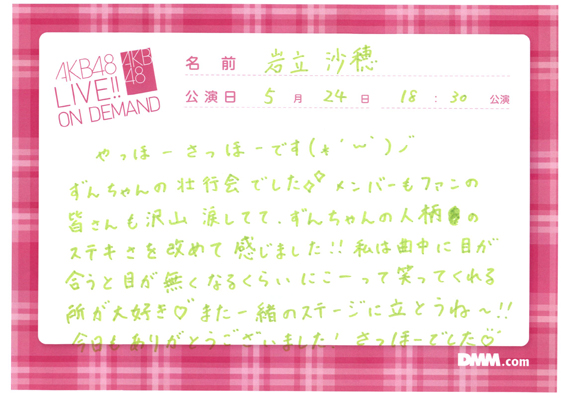 AKB48
LIVE!!
ON DEMAND
AKB
48
名 前 岩立 沙穂
公演日 5 月 24 日 18 : 30 公演
やっほーさっほーです(*´ω`)ノ
ずんちゃんの壮行会でした メンバーもファンの
皆さんも沢山 涙してて、ずんちゃんの人柄の
ステキさを改めて感じました!! 私は曲中に目が
合うと目が無くなるくらいにこーって笑ってくれる
所が大好き♡ また一緒のステージに立とうね〜!!
今日もありがとうございました! さっほーでした♡
DMM.com